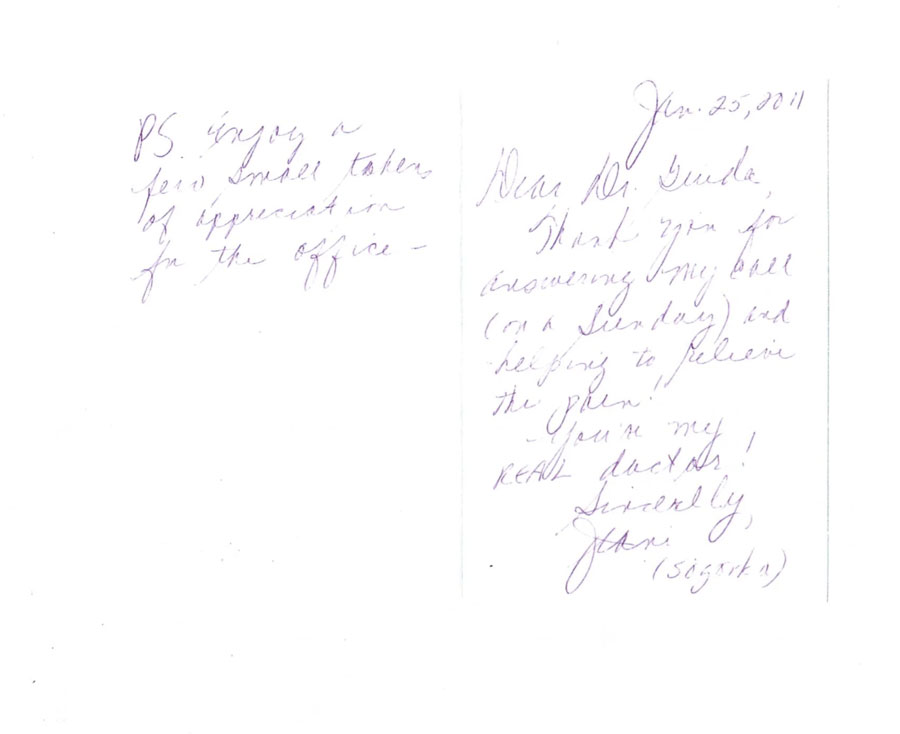 Jan. 25, 2011
Dear Dr.
Thank you for
answering my call
(on a Sunday) and
helping to relieve
the pain!
- You're my
REAL doctor!
Sincerely,
PS. Enjoy a
few small tokens
of appreciation
for the office -